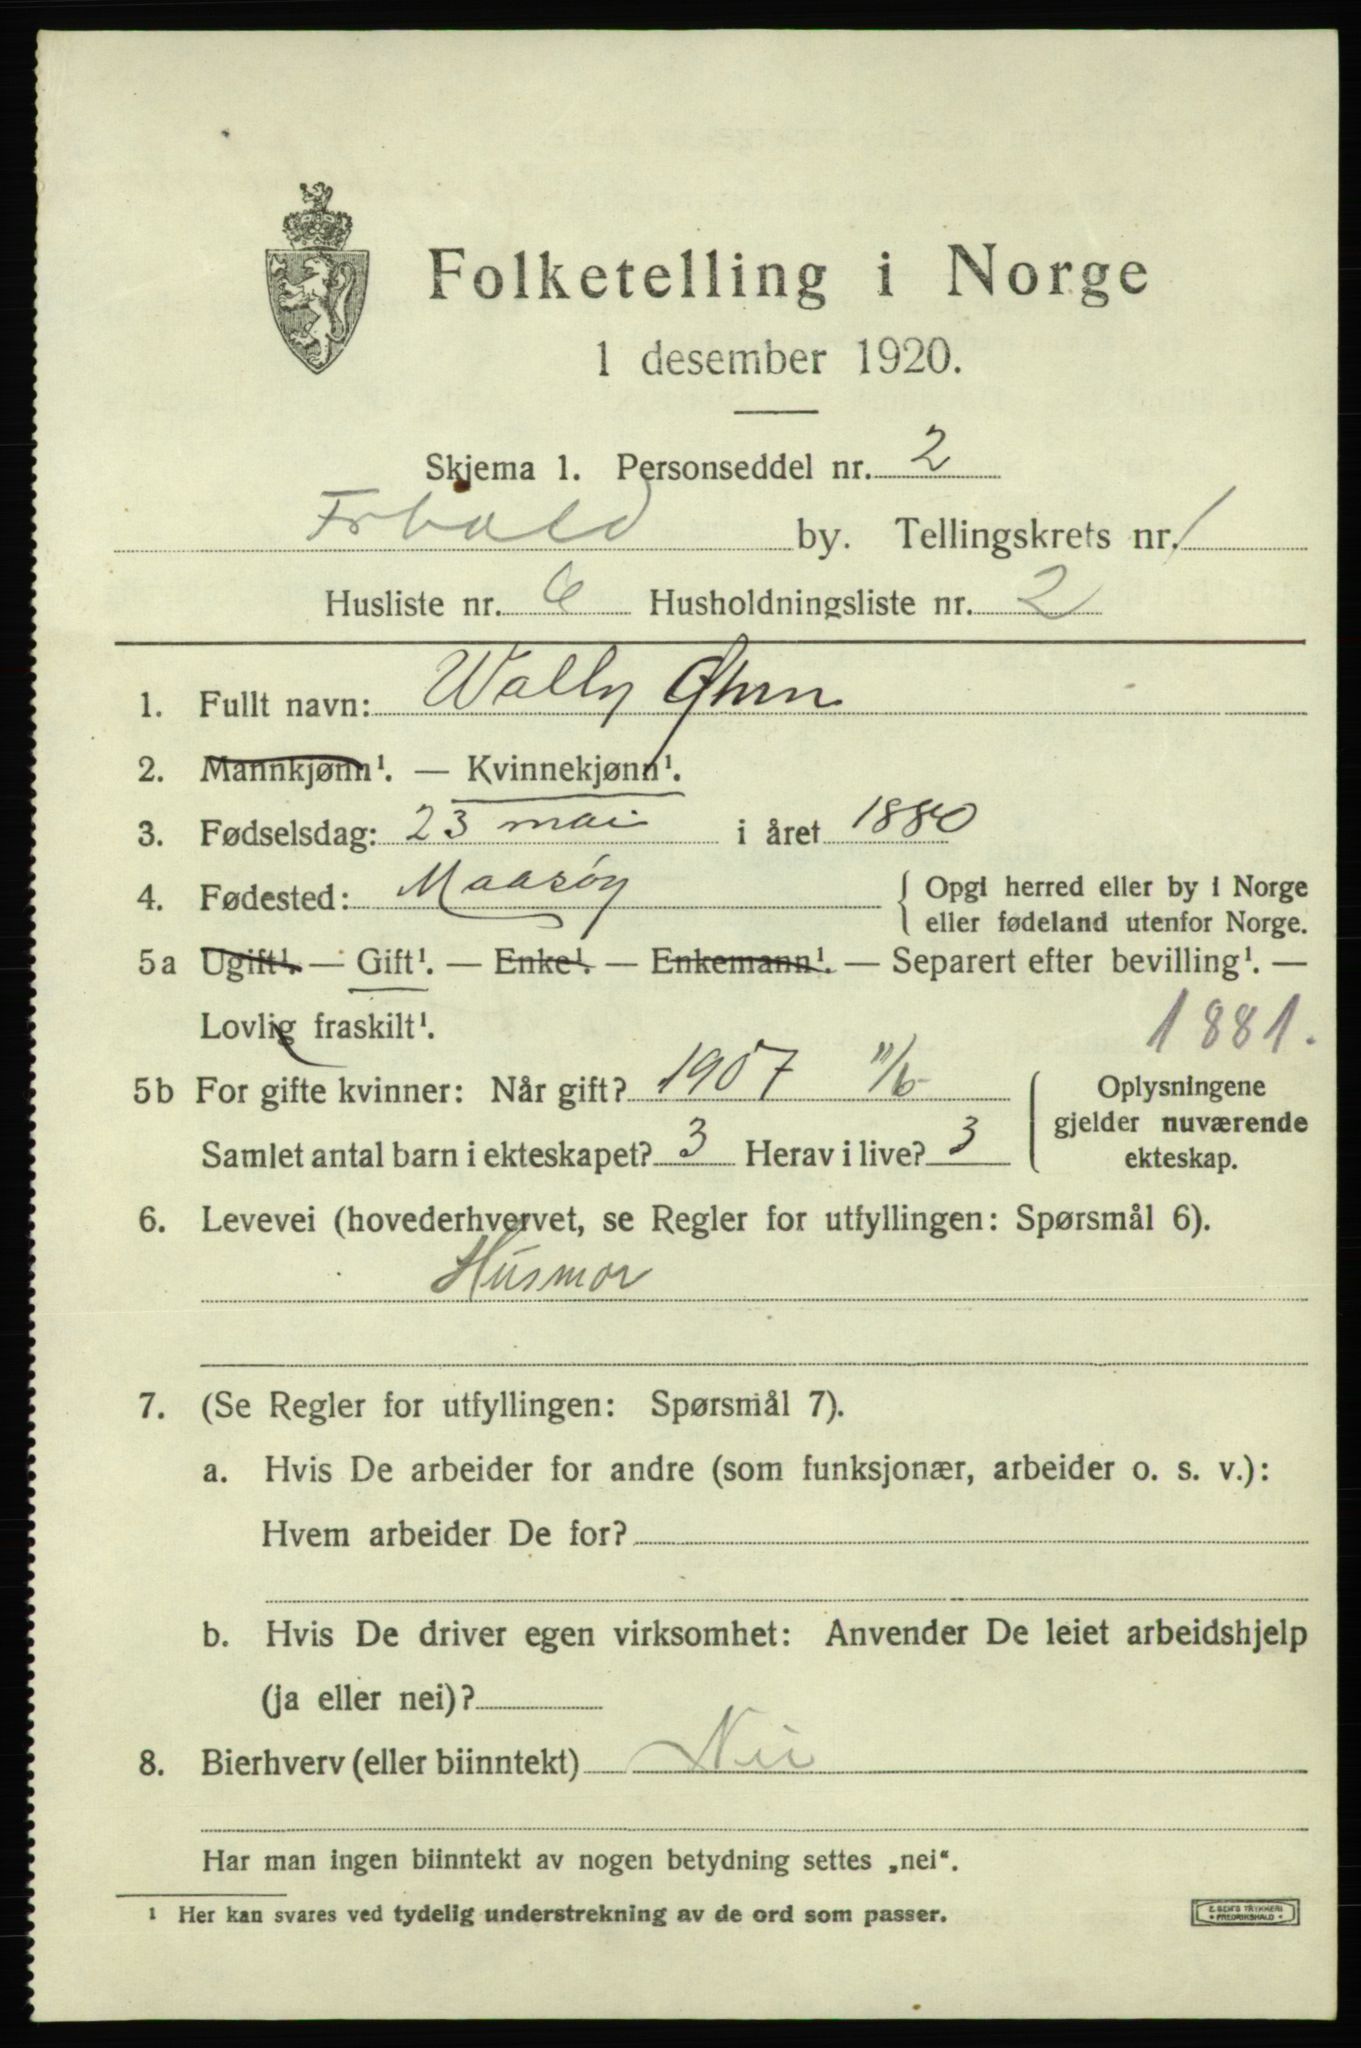 Folketelling i Norge
1 desember 1920.
Skjema 1. Personseddel nr. 2
Frhald by. Tellingskrets nr. 1
Husliste nr. 6 Husholdningsliste nr. 2
1. Fullt navn: Wally
2. Mannkjønn¹. — Kvinnekjønn¹.
3. Fødselsdag: 23 mai i året 1880
4. Fødested: Maasøy { Opgi herred eller by i Norge
eller fødeland utenfor Norge.
5a Ugift¹. — Gift¹. — Enke¹. — Enkemann¹. — Separert efter bevilling¹. —
Lovlig fraskilt¹. 1881.
5b For gifte kvinner: Når gift? 1907 11/6 { Oplysningene
gjelder nuværende
Samlet antal barn i ekteskapet? 3 Herav i live? 3 ekteskap.
6. Levevei (hovederhvervet, se Regler for utfyllingen: Spørsmål 6).
Husmor
7. (Se Regler for utfyllingen: Spørsmål 7).
a. Hvis De arbeider for andre (som funksjonær, arbeider o. s. v.):
Hvem arbeider De for?
b. Hvis De driver egen virksomhet: Anvender De leiet arbeidshjelp
(ja eller nei)?
8. Bierhverv (eller biinntekt) Nei
Har man ingen biinntekt av nogen betydning settes „nei“.
¹ Her kan svares ved tydelig understrekning av de ord som passer.
E. SEM'S TRYKKERI
FREDRIKSHALD